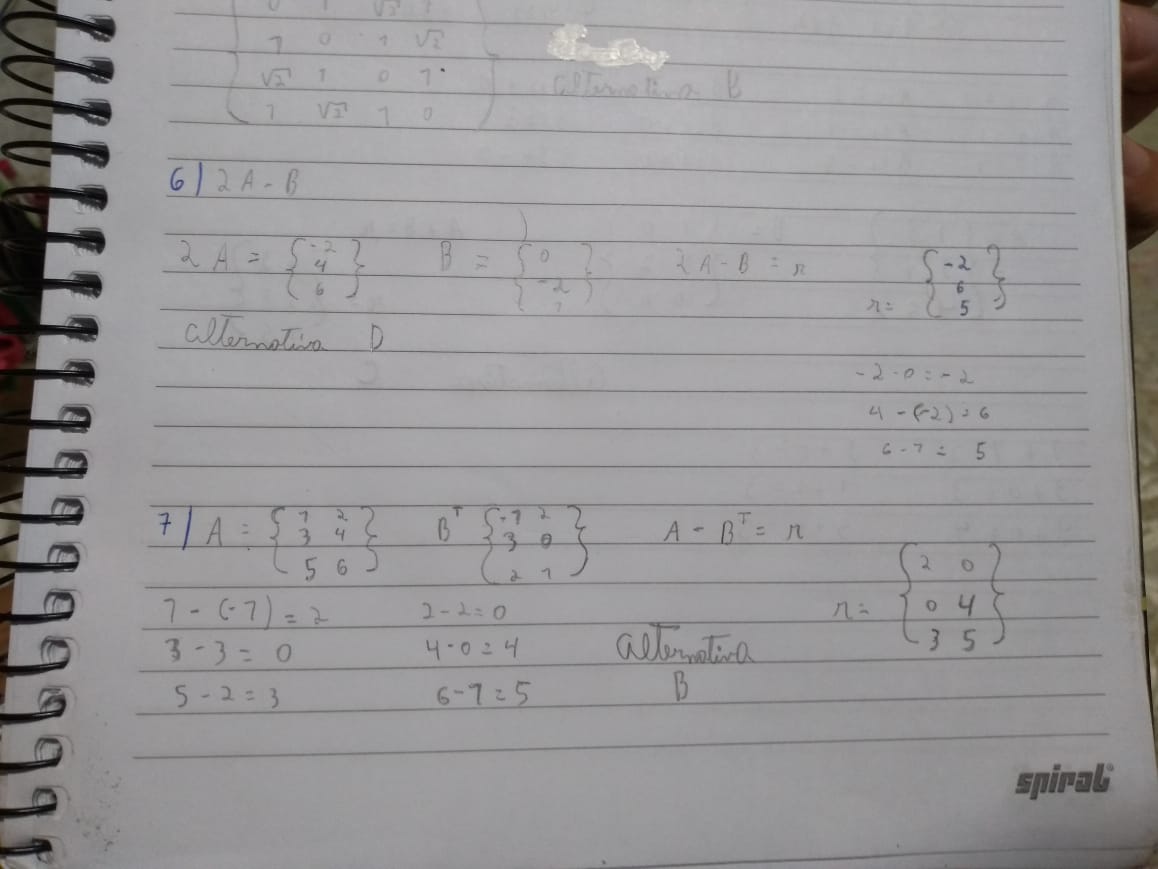 0 1 √2 1
1 0 1 √2
√2 1 0 1
1 √2 1 0
alternativa B
6) 2A - B
2A = { -2 4 6 } B = { 0 -2 1 } 2A - B = r r = { -2 6 5 }
alternativa D
-2 - 0 = -2
4 - (-2) = 6
6 - 1 = 5
7) A = { 1 2 3 4 5 6 } Bᵀ { -1 2 3 0 2 1 } A - Bᵀ = r
r = { 2 0 0 4 3 5 }
1 - (-1) = 2 2 - 2 = 0
3 - 3 = 0 4 - 0 = 4 alternativa
5 - 2 = 3 6 - 1 = 5 B
spiral